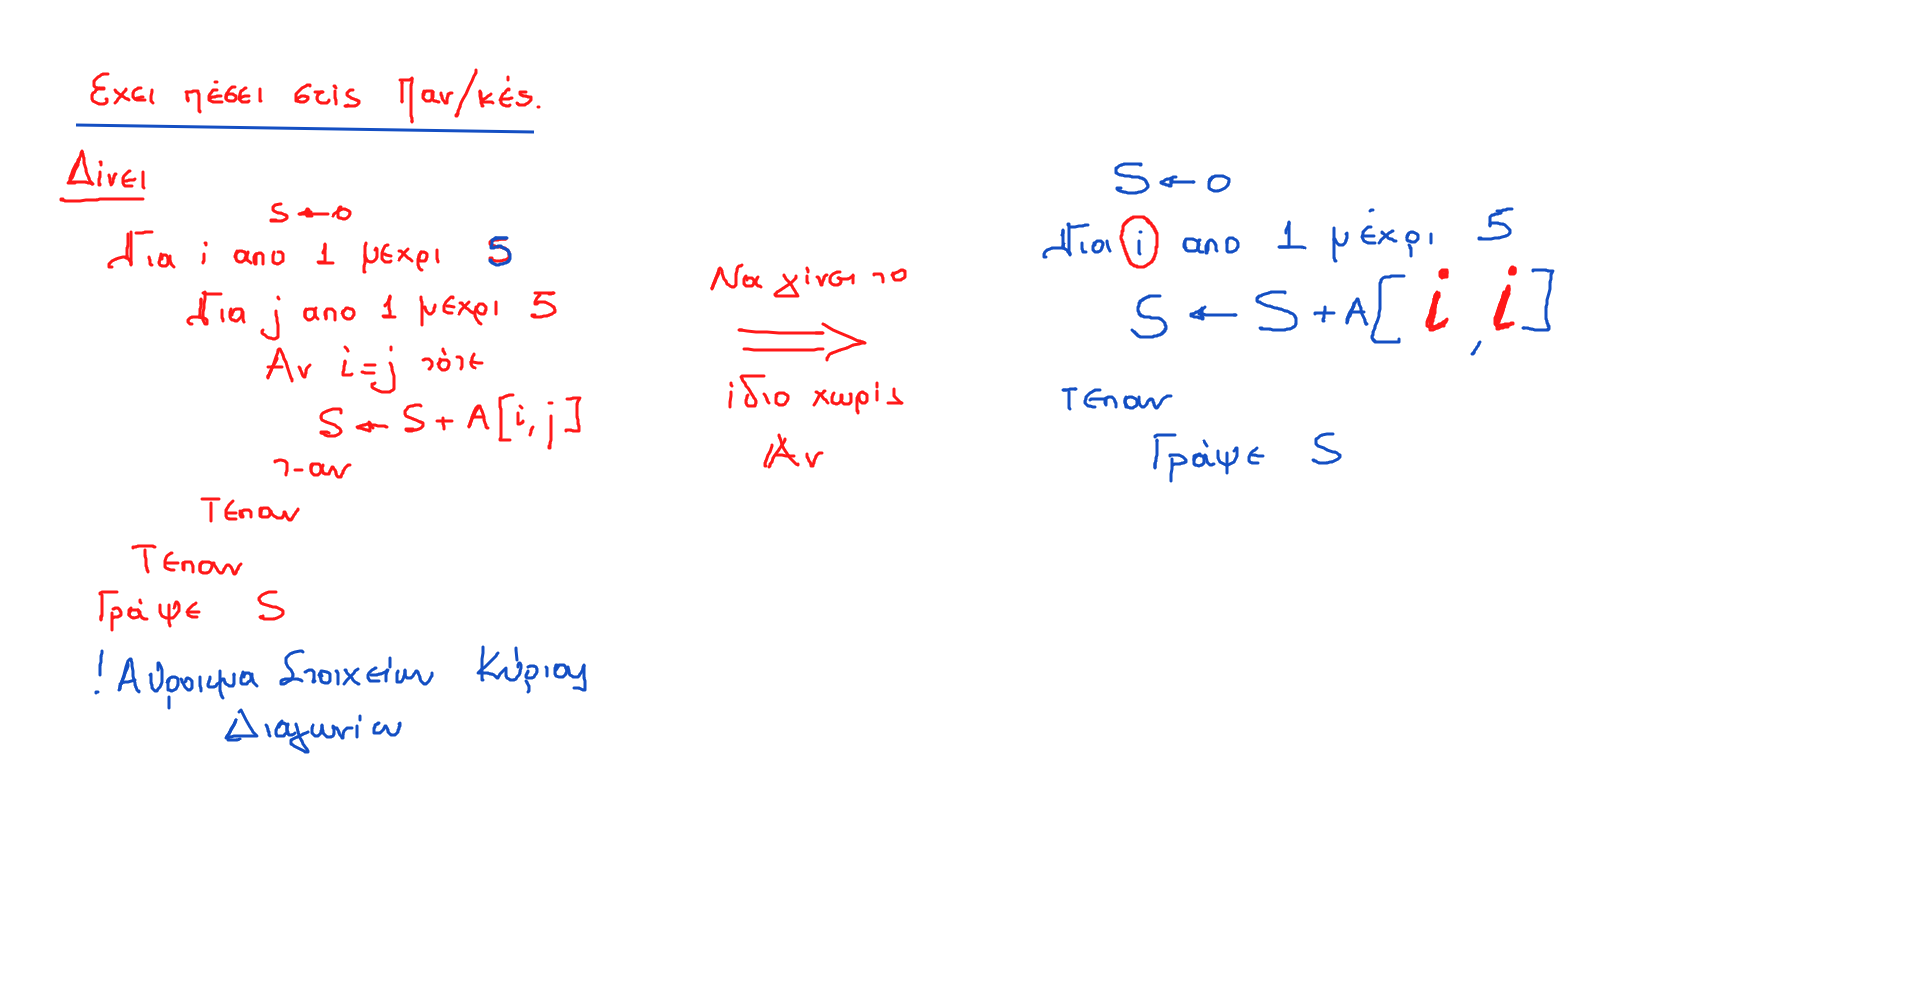 Εχει πέσει στις Παν/κές.
Δίνει
S ← 0
Για i απο 1 μέχρι 5
Για j απο 1 μεχρι 5
Αν i = j τότε
S ← S + A[i, j]
τ-αν
Τεπαν
Τεπαν
Γράψε S
! Αθροισμα Στοιχείων Κύριας
Διαγωνίου
Να γίνει το
⇒
ίδιο χωρίς
Αν
S ← 0
Για i απο 1 μέχρι 5
S ← S + A[i, i]
Τεπαν
Γράψε S